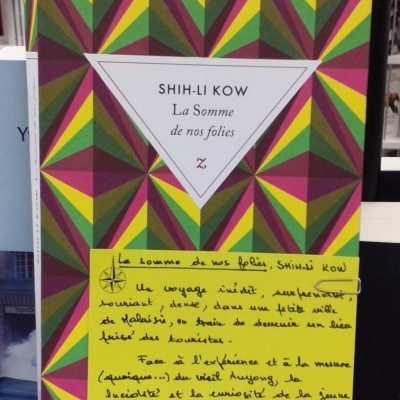 SHIH-LI KOW
La Somme
de nos folies
z
La somme de nos folies, SHIH-LI KOW
Un voyage inédit, surprenant,
souriant, dense, dans une petite ville
de Malaisie, en train de devenir un lieu
prisé des touristes.
Face à l'expérience et à la mesure
(quoique...) du vieil Auyong, la
lucidité et la curiosité de la jeune